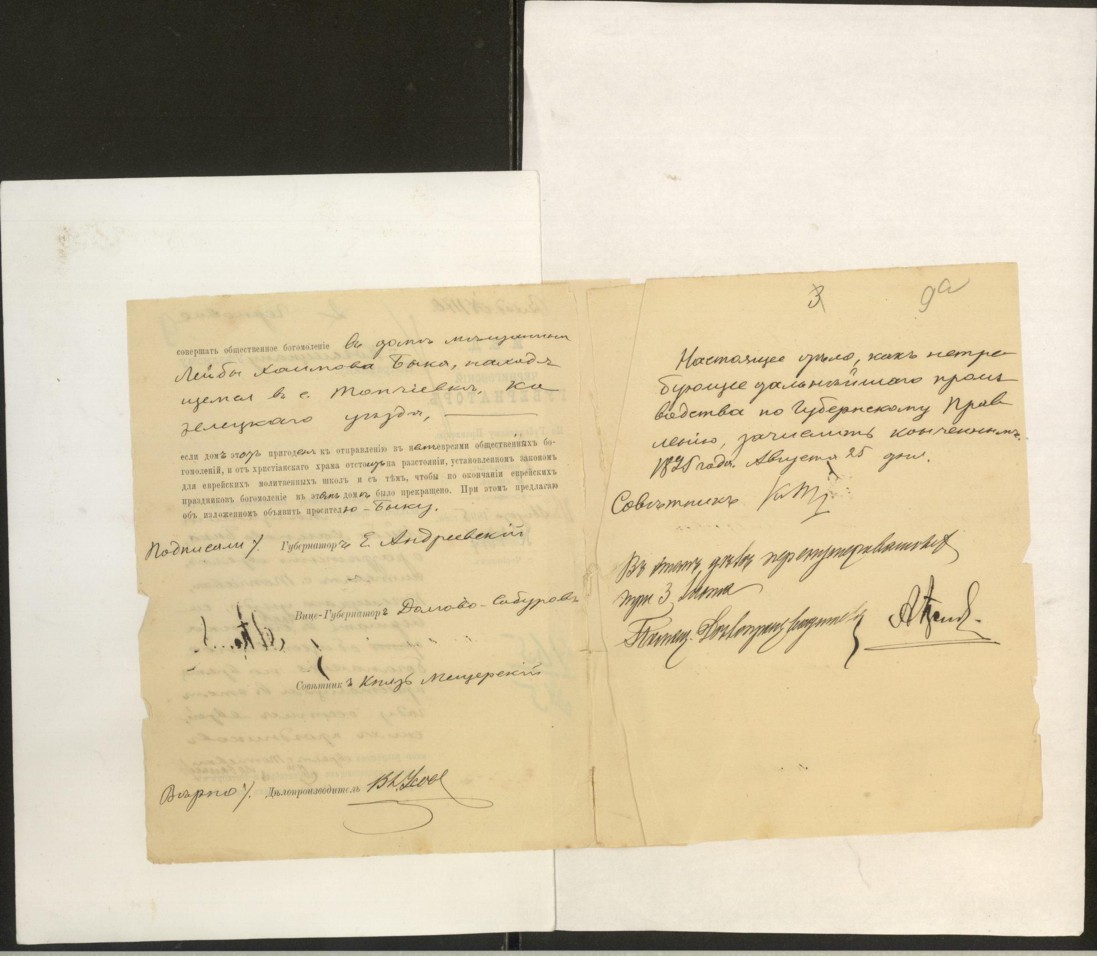 совершать общественное богомоленіе въ домѣ мѣщанина
Лейбы Хаимова Быка, находя
щемся въ с. Топчіевкѣ, Ко
зелецкаго уѣзда,
если домъ этотъ пригоденъ къ отправленію въ немъ евреями общественныхъ бо-
гомоленій, и отъ христіанскаго храма отстоитъ на разстояніи, установленномъ закономъ
для еврейскихъ молитвенныхъ школъ и съ тѣмъ, чтобы по окончаніи еврейскихъ
праздниковъ богомоленіе въ этомъ домѣ было прекращено. При этомъ предлагаю
объ изложенномъ объявить просителю Быку.
Подписали: Губернаторъ Е. Андреевскій
Вице-Губернаторъ Долгово-Сабуровъ
Совѣтникъ Князь Мещерскій
Вѣрно: Дѣлопроизводитель
3
9а
Настоящее дѣло, какъ нетре-
бующее дальнѣйшаго произ
водства по Губернскому Прав
ленію, зачислить конченнымъ.
года, Августа 25 дня.
Совѣтникъ
Въ этомъ дѣлѣ перенумерованныхъ
три 3 листа